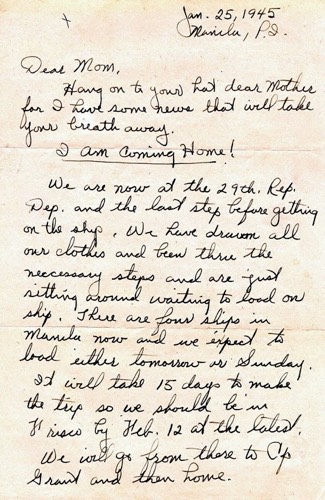 Jan. 25, 1945
Manila, P.I.
Dear Mom,
Hang on to your hat dear Mother
for I have some news that will take
your breath away.
I am Coming Home!
We are now at the 29th. Rep.
Dep. and the last step before getting
on the ship. We have drawn all
our clothes and been thru the
neccessary steps and are just
sitting around waiting to load on
ship. There are four ships in
Manila now and we expect to
load either tomorrow or Sunday.
It will take 15 days to make
the trip so we should be in
Frisco by Feb. 12 at the latest.
We will go from there to Cp
Grant and then home.